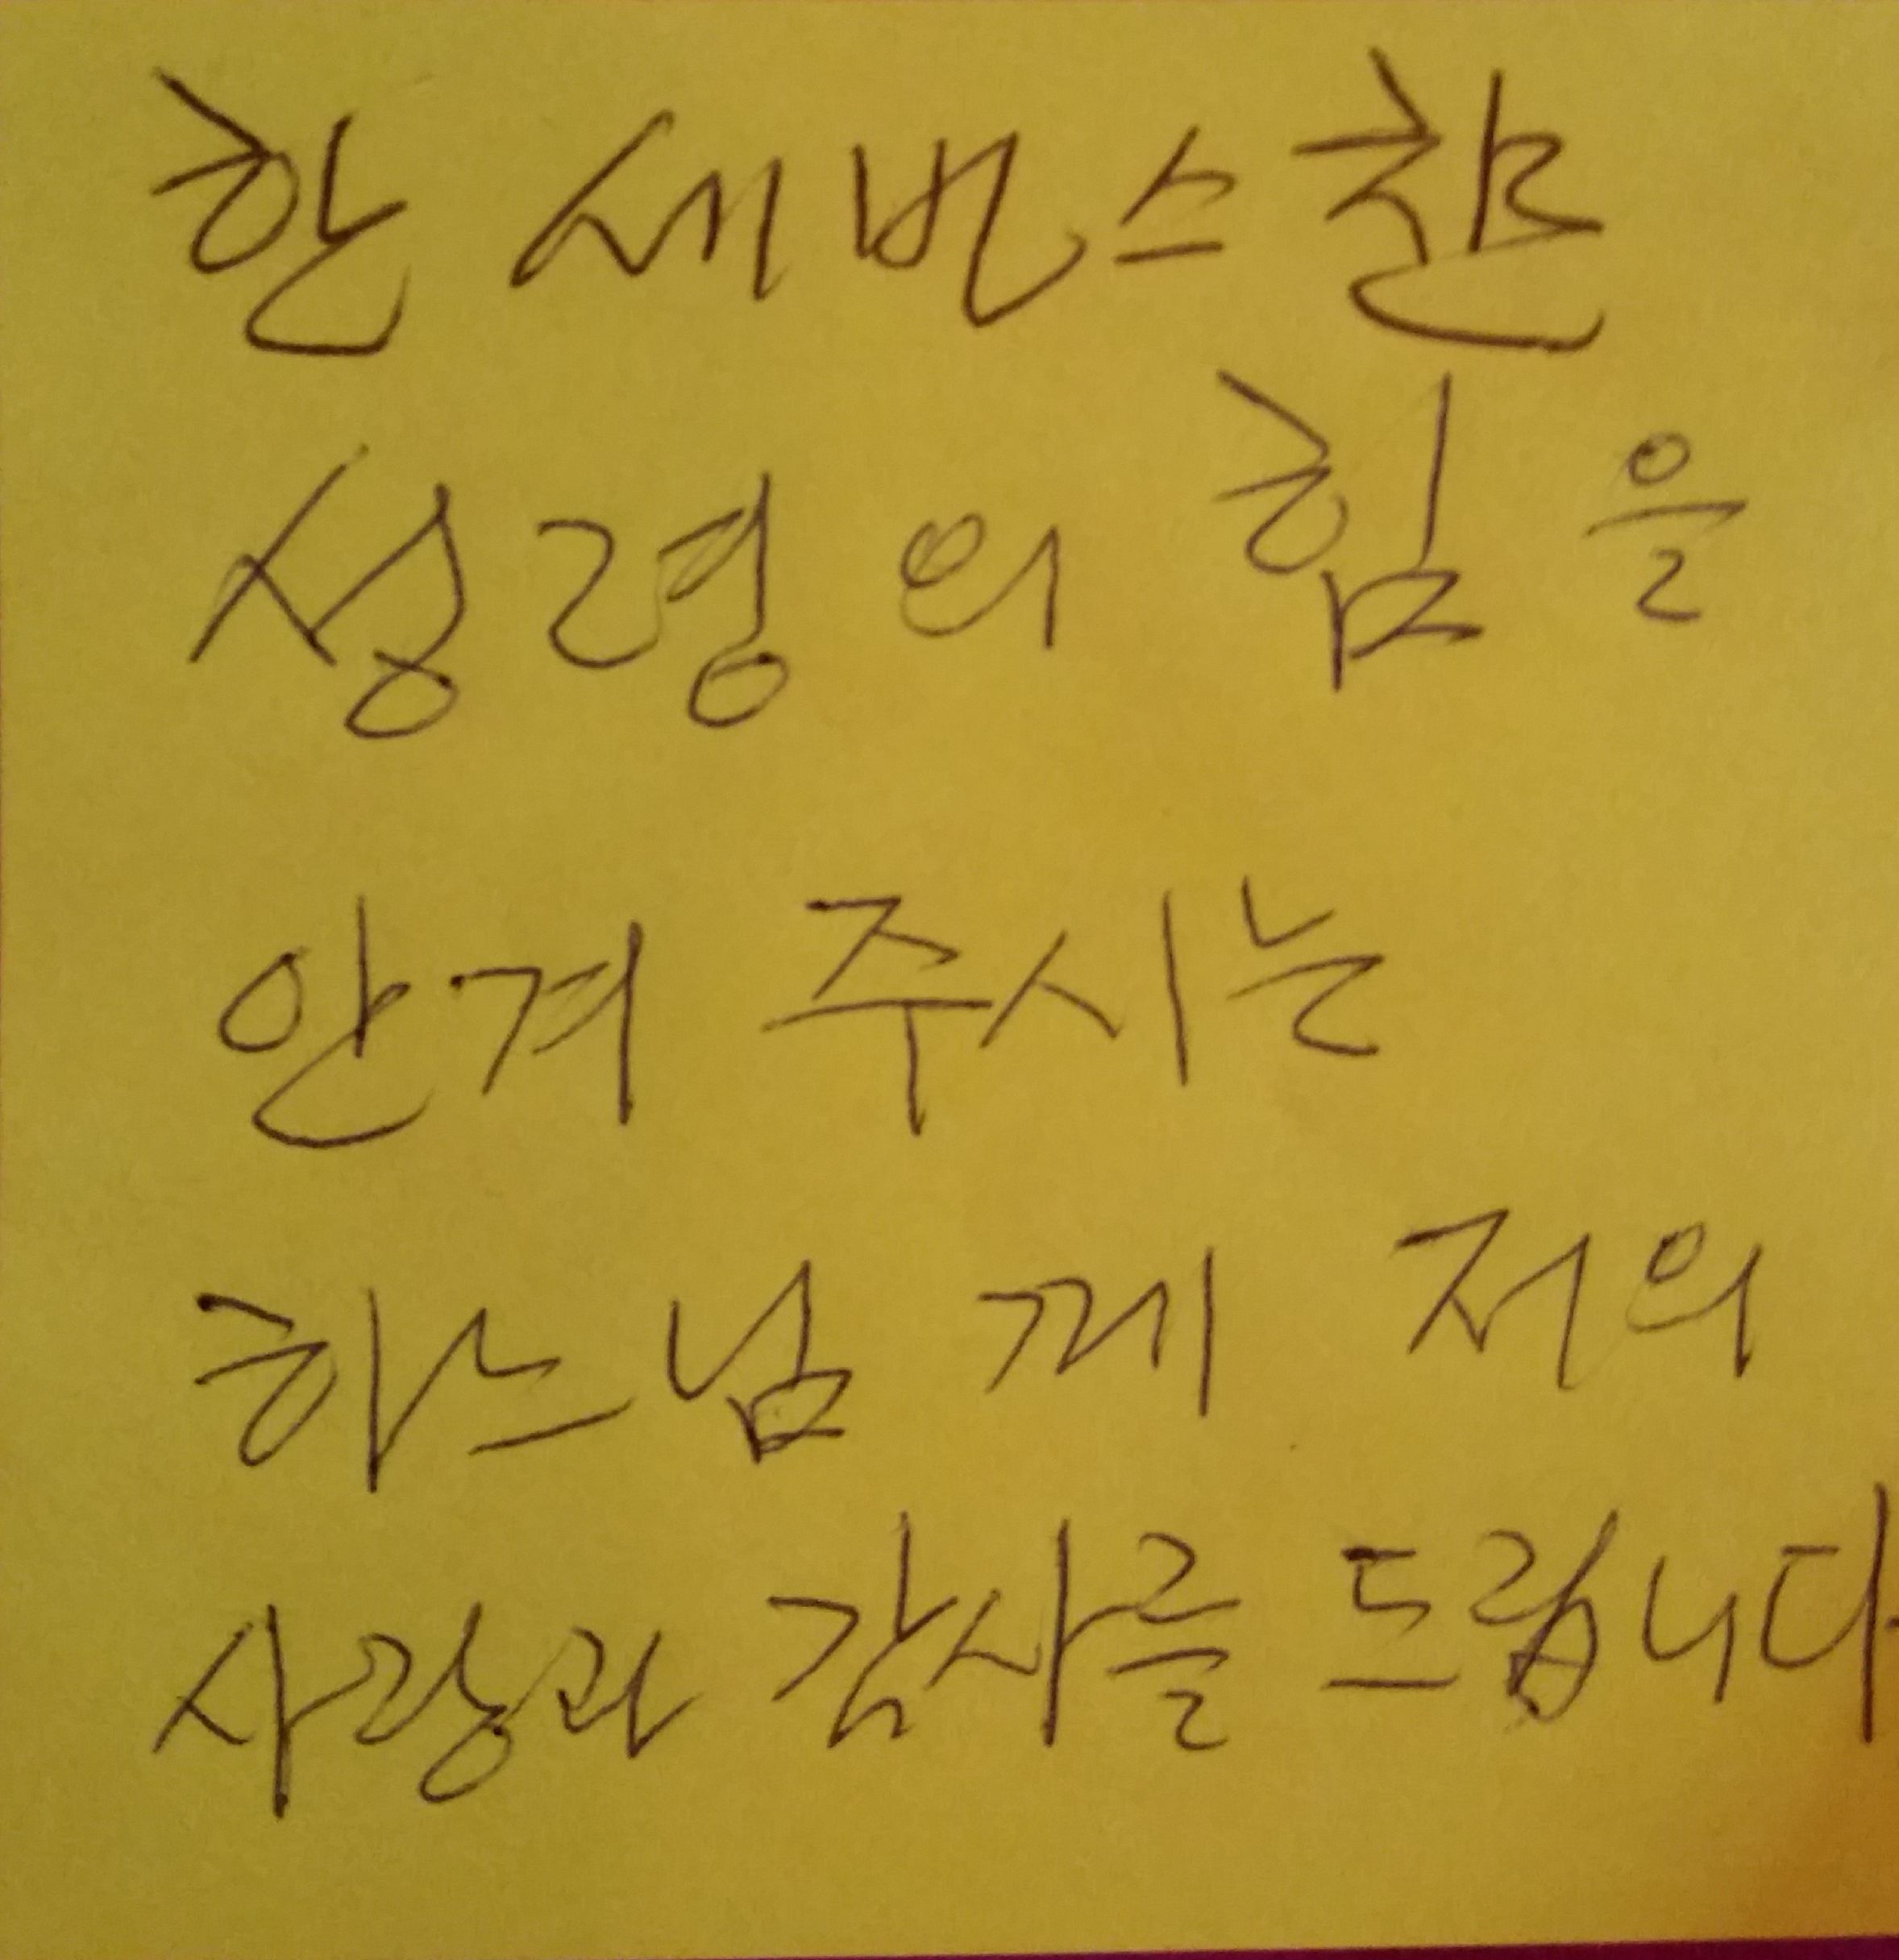 한 세번스찬
성령의 힘을
안겨 주시는
하느님께 저의
사랑과 감사를 드립니다